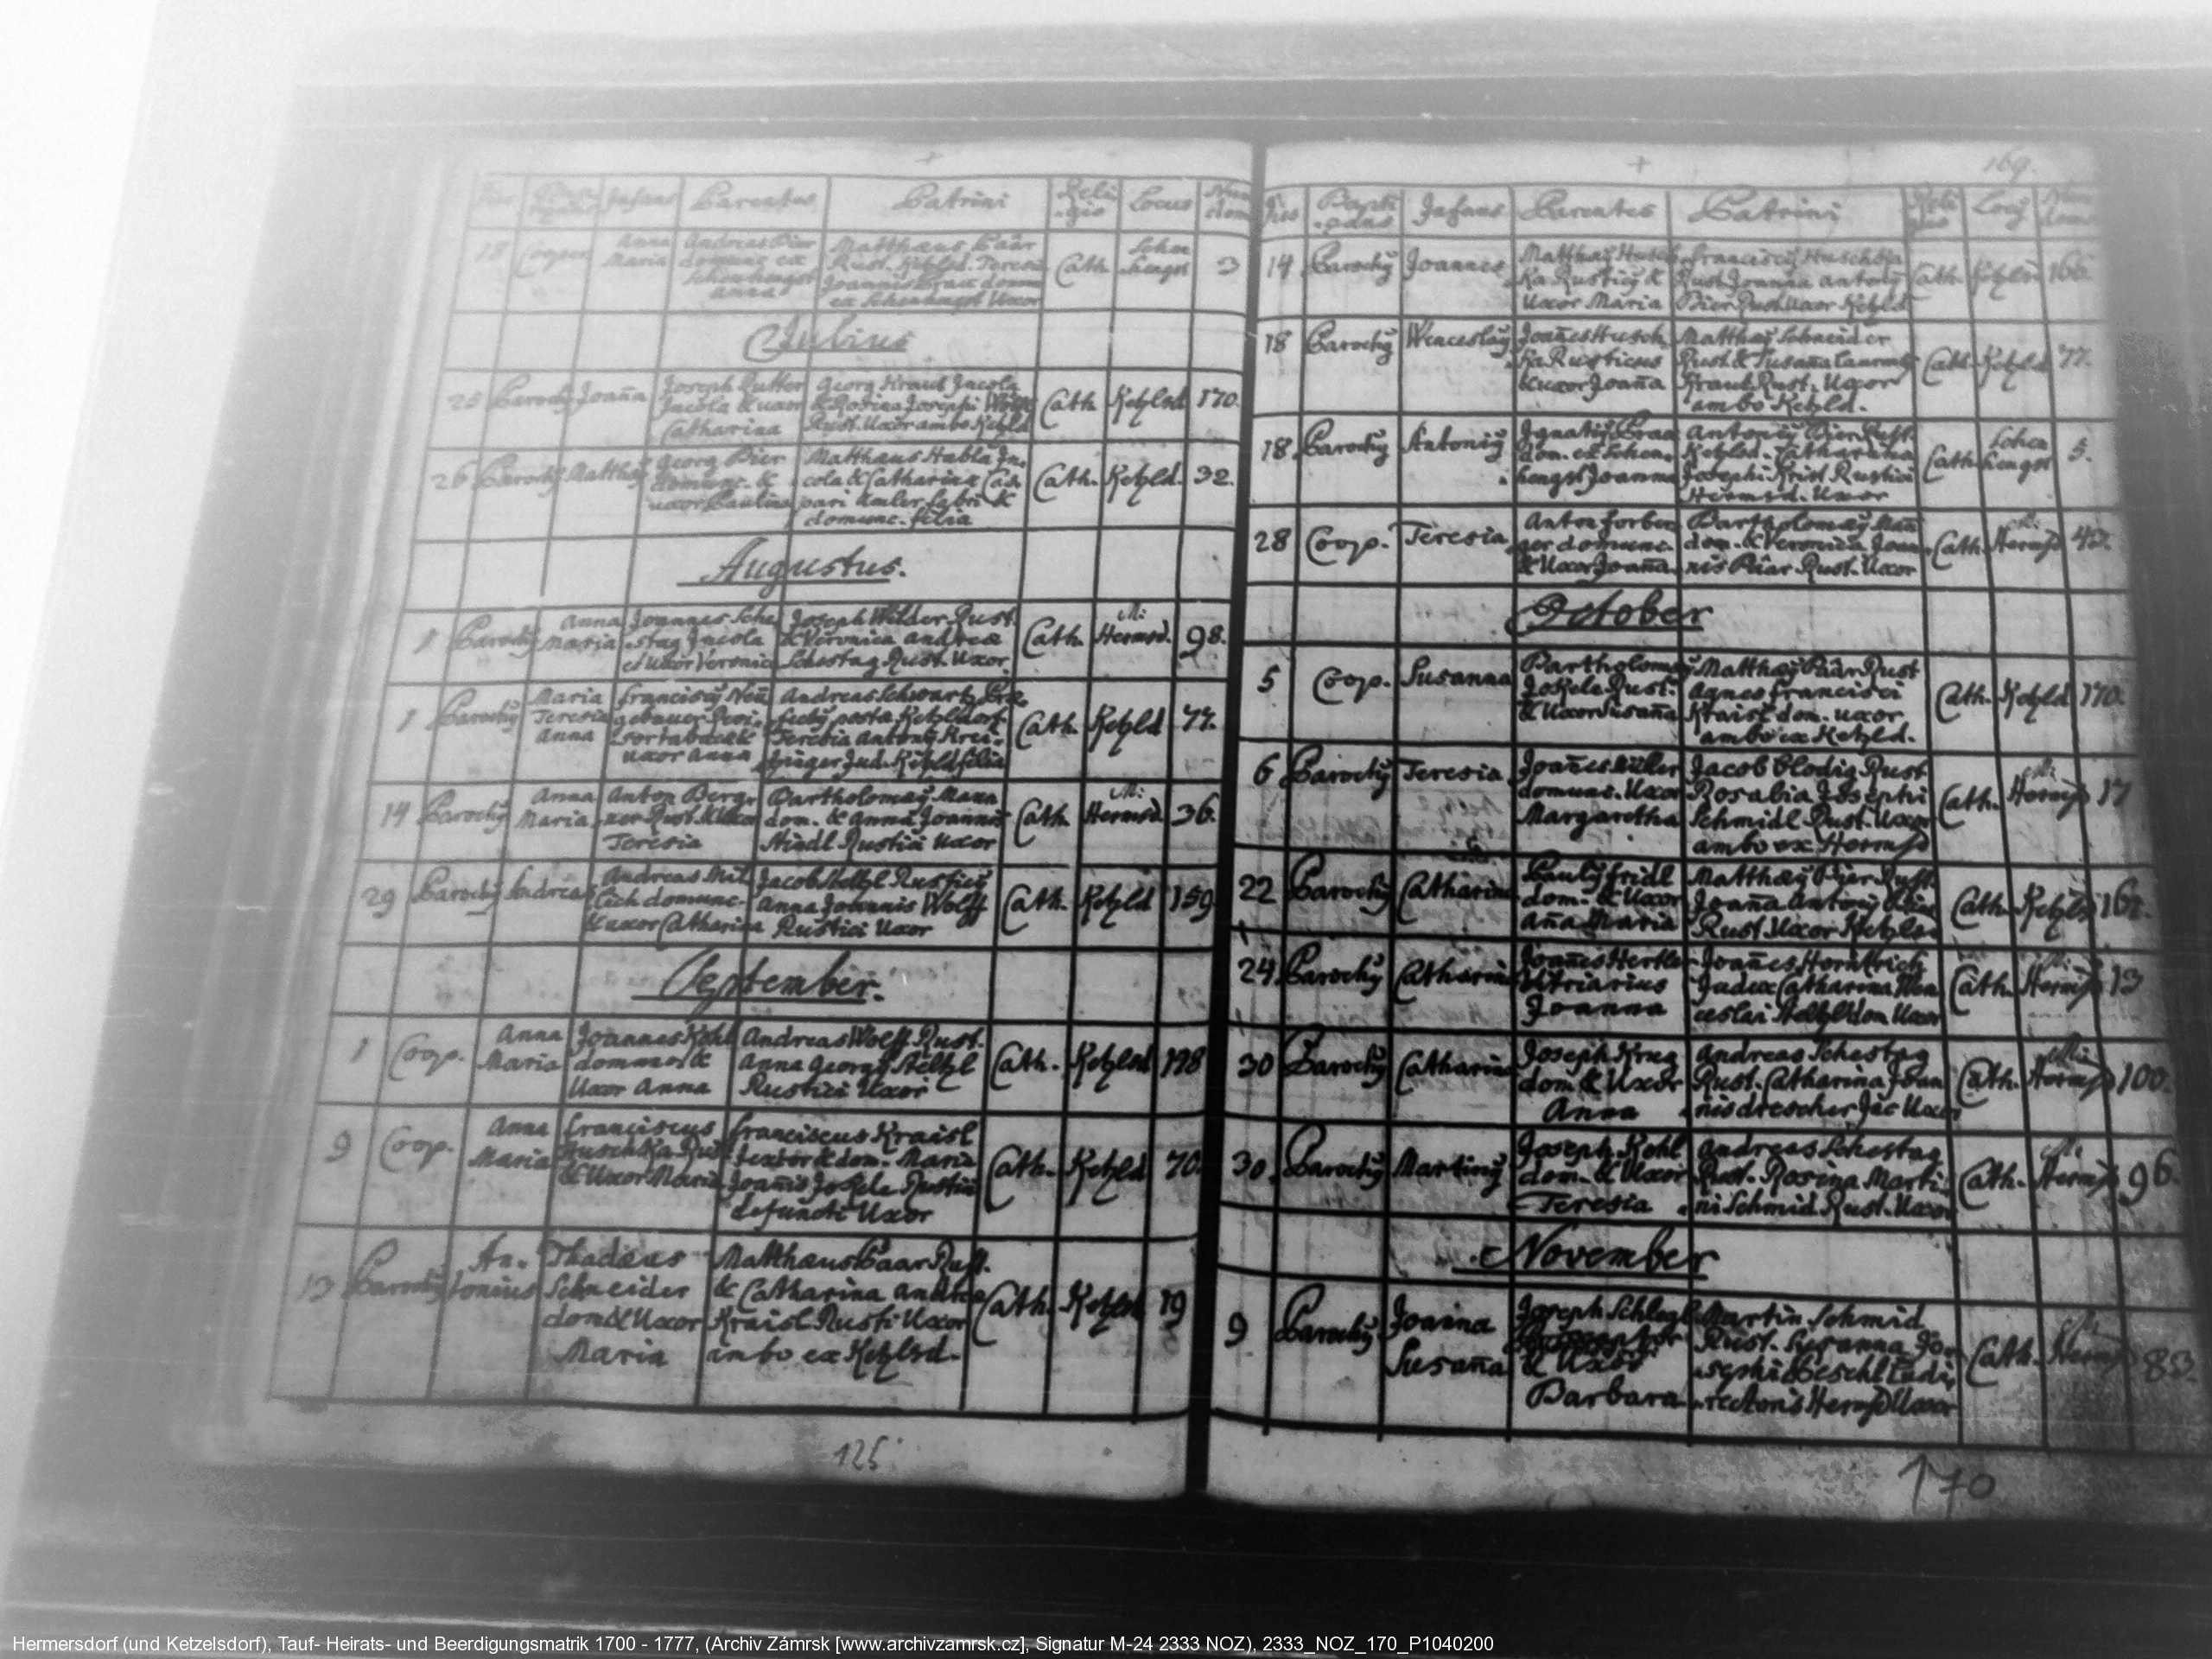 Infans Parentes Patrini Religio Locus Num dom
18 Cooper Anna Maria Andreas Pier domunc ex Schenhengst Anna
Matthæus Paâr Rust. Ketzlsd. Teresia Joannis ex Schenhengst Uxor
Cath. Schenhengst 3
Julius
25 Parochÿ Joaña Joseph Rutter Incola & uxor Catharina
Georg Kraus Incola & Rosina Josephi Wolff Rust. Uxor ambo Ketzld
Cath Ketzlsd 170.
26 Parochÿ Matthæÿ Georg Pier domunc. & uxor Paulina
Matthæus Habla Incola & Catharina Caspari Amler fabri & domunc. filia
Cath. Ketzld. 32.
Augustus.
1 Parochÿ Anna Maria Joannes Schestag Incola et Uxor Veronica
Joseph Wilder Rust. & Veronica Andreæ Schestag Rust. Uxor.
Cath. M: Hermsd. 98.
1 Parochÿ Maria Teresia Anna Franciscÿ Neugebauer uxor Anna
Andreas Schwartz posta Ketzldorf Teresia Antonÿ Jud. Ketzld filia
Cath. Ketzld 77.
14 Parochÿ Anna Maria Anton Berger Rust. & Uxor Teresia
Bartholomæÿ Mann dom. & Anna Joannis Hindl Rustici Uxor
Cath. M: Hermsd. 36.
29 Parochÿ Andreas Andreas domunc. & uxor Catharina
Jacob Steltzl Rusticÿ Anna Joannis Wolff Rustici Uxor
Cath. Ketzld 159
September.
1 Coop. Anna Maria Joannes Kohl domunc & Uxor Anna
Andreas Wolff Rust. Anna Georgÿ Steltzl Rustici Uxor
Cath. Ketzlsd 178
9 Coop. Anna Maria Franciscus Huschka Rust & Uxor Maria
Franciscus Kraisl textor & dom. Maria Joañis Joksle Rustici defuncti Uxor
Cath. Ketzld 70.
13 Parochÿ Antonius Thadæus Schneider dom & Uxor Maria
Matthæus Paar Rust. & Catharina Andreæ Kraisl Rusti Uxor ambo ex Ketzlsd.
Cath. Ketzlsd 19
125
169.
Dies Bapti-zans Infans Parentes Patrini Religio Locÿ Num dom
14 Parochÿ Joannes Matthæÿ Huschka Rusticÿ & Uxor Maria
Franciscÿ Huschka Rust Joanna Antonÿ Bier Rust Uxor Ketzld
Cath. Ketzlsd 166.
18 Parochÿ Wenceslaÿ Joañes Huschka Rusticus & uxor Joaña
Matthæÿ Schneider Rust. & Susaña Laurentÿ Kraus Rust. Uxor ambo Ketzld.
Cath. Ketzld 77.
18. Parochÿ Antoniÿ Ignatiÿ dom. ex Schenhengst Joanna
Antoniÿ Bier Rust. Ketzlsd. Catharina Josephi Krist Rustici Hermsd. Uxor
Cath. Schenhengst 5.
28 Coop. Teresia Anton forberger domunc & Uxor Joaña
Bartholomæÿ Mañ dom. & Veronica Joannis Pâar Rust. Uxor
Cath. M: Hermsd
October
5 Coop. Susanna Bartholomæÿ Joksle Rust. & Uxor Susaña
Matthæÿ Pâar Rust Agnes Francisci Kraisl dom. uxor ambo ex Ketzld.
Cath. Ketzld 170.
6 Parochÿ Teresia Joañes Müller domunc. Uxor Margaretha
Jacob Blodig Rust Rosalia Josephi Schmidl Rust. Uxor ambo ex Hermsd
Cath. M: Hermsd 17
22 Parochÿ Catharina Paulÿ fridl dom. & Uxor Aña Maria
Matthæÿ Pier Rust. Joaña Antonÿ Rust Uxor Ketzlsd
Cath. Ketzlsd
24 Parochÿ Catharina Joañes Hertler Vitriarius Joanna
Joañes Hornttrich Judex Catharina Wenceslai Steltzl dom Uxor
Cath. M: Hermsd 13
30 Parochÿ Catharina Joseph Krug dom & Uxor Anna
Andreas Schestag Rust. Catharina Joannis drescher Uxor
Cath. M: Hermsd 100.
30. Parochÿ Martinÿ Joseph Kohl dom. & Uxor Teresia
Andreas Schestag Rust. Rosina Martini Schmid Rust. Uxor
Cath. M: Hermsd 96.
November
9 Parochÿ Joaina Susaña Joseph Schlegl & Uxor Barbara
Martin Schmid Rust. Susanna Josephi Ludirectoris Hermsd Uxor
Cath. M: Hermsd 83.
170
Hermersdorf (und Ketzelsdorf), Tauf- Heirats- und Beerdigungsmatrik 1700 - 1777, (Archiv Zámrsk [www.archivzamrsk.cz], Signatur M-24 2333 NOZ), 2333_NOZ_170_P1040200